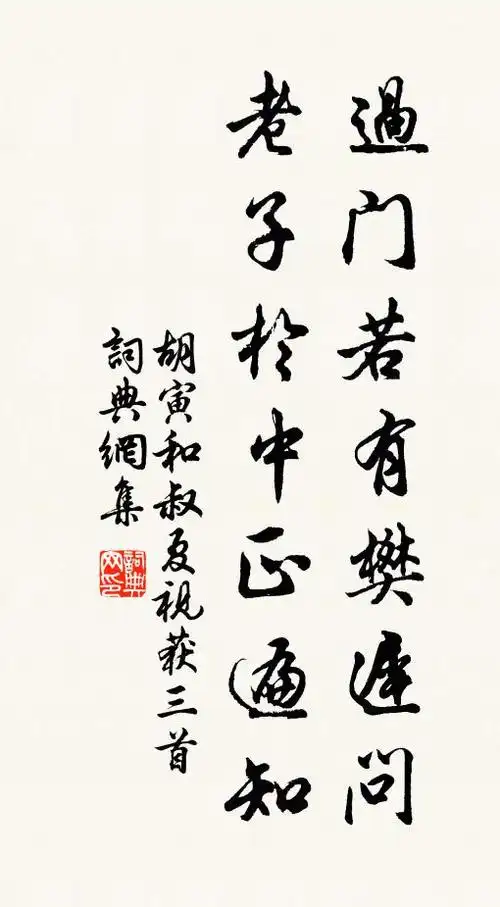 過门若有樊遲问
老子於中正遍知
胡寅和叔夏視获三首
詞典網集
詞典网印